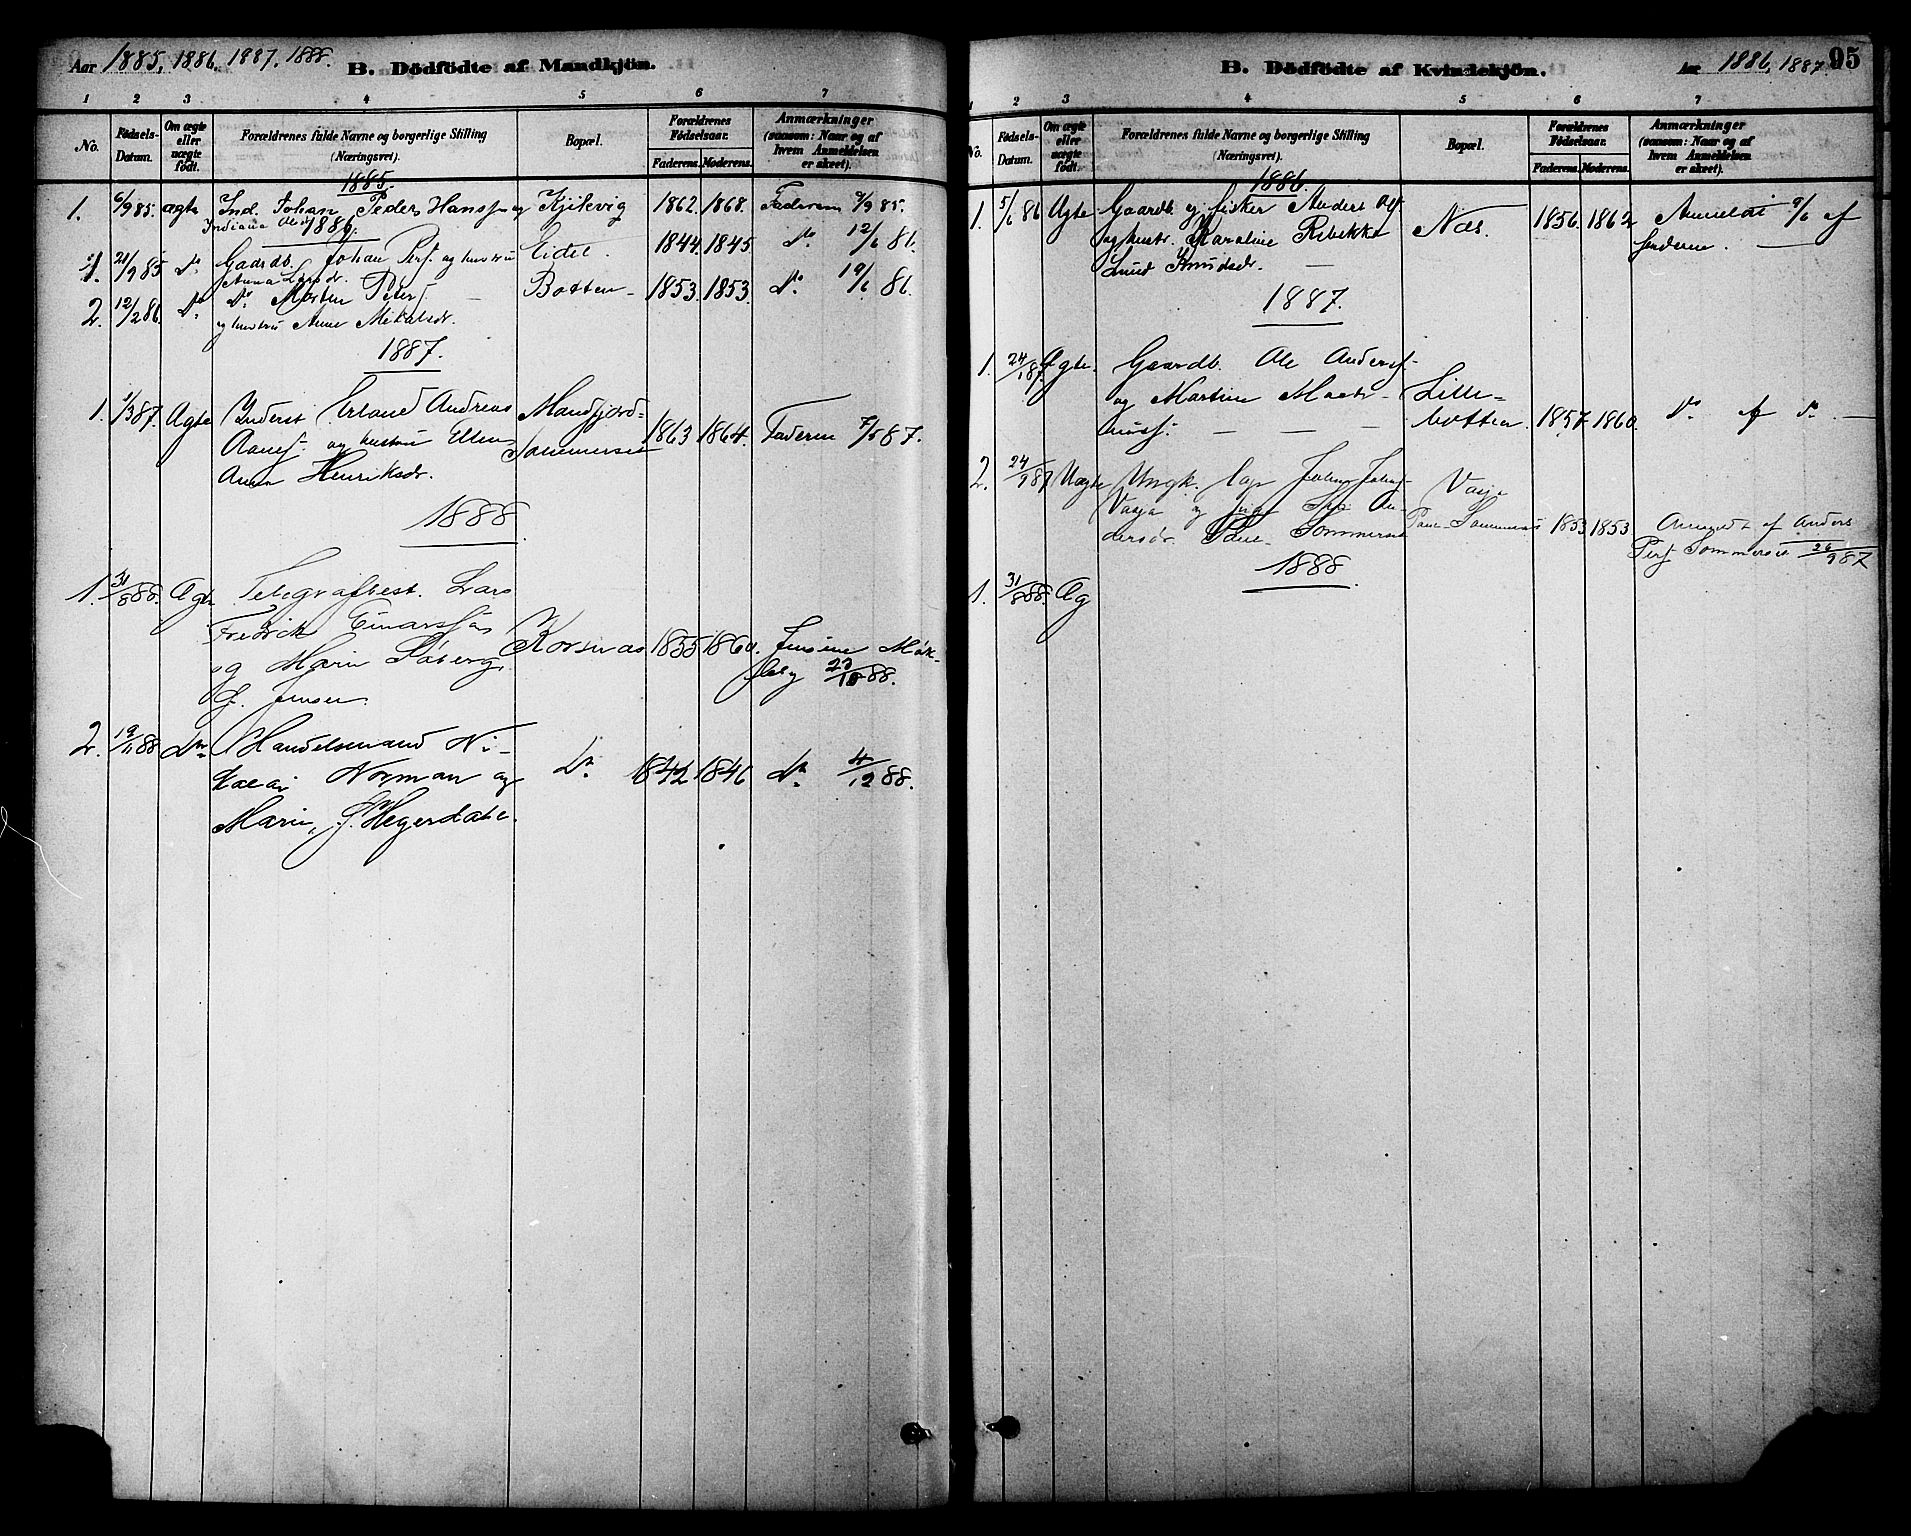 Aar 1885, 1886, 1887, 1888.
B. Dödfödte af Mandkjön.
1 2 3 4 5 6 7
No.
Födsels-Datum.
Om ægte eller uægte födt.
Forældrenes fulde Navne og borgerlige Stilling (Næringsvei).
Bopæl.
Forældrenes Födselsaar.
Faderens. Moderens.
Anmærkninger (saasom: Naar og af hvem Anmeldelsen er skeet).
1885.
1. 6/9 85. ægte Ind. Johan Peder Hanss. og Kjikvig 1862. 1868. Faderen 9/9 85.
Indiana
1886.
1. 21/9 85 do Gaardb. Johan Pers. og hustru Eidet. 1844. 1845. do 12/6 86.
Anna Larsdr.
2. 12/2 86. do do Morten Peters. Botten 1853. 1853. do 19/6 86.
og hustru Anne Mikalsdr.
1887.
1. 1/3 87. Ægte Inderst Erland Andreas Mandfjord-
Aanes. og hustru Ellen Sommerset 1863 1864. Faderen 7/5 87.
Anna Henriksdr.
1888
1. 31/8 88. Ægte Telegrafbest. Lars
Fredrik Einarssön Korsnæs 1855 1860. Jensine Mök-
og Marie Soberg leby 23/10 88.
f. Jensen.
2. 19/11 88 Do Handelsmand Ni-
kolai Norman og Do 1842 1846 do 4/12 88.
Marie, f. Hegerdahl.
B. Dödfödte af Kvindekjön.
Aar 1886, 1887 95
1 2 3 4 5 6 7
No.
Födsels-Datum.
Om ægte eller uægte födt.
Forældrenes fulde Navne og borgerlige Stilling (Næringsvei).
Bopæl.
Forældrenes Födselsaar.
Faderens. Moderens.
Anmærkninger (saasom: Naar og af hvem Anmeldelsen er skeet).
1886.
1. 5/6 86 Ægte Gaardb. og fisker Anders Ols.
og hustr. Karoline Rebekka Næs. 1856. 1862 Anmeldt 9/6 af
Lund Knudsdr. faderen.
1887.
1. 24/1 87. Ægte. Gaardb. Ole Anders.
og Martine Lille-
botten 1857. 1860. do af do
2. 24/9 87 Uægte Ungk. Lap Johan Johns. Vasja
Vasja og An-
dersdr. Sommerset Sommerset 1853 1853 Anmeldt af Anders
Pers. Sommerset 26/9 87
1888.
1. 31/8 88. Æg